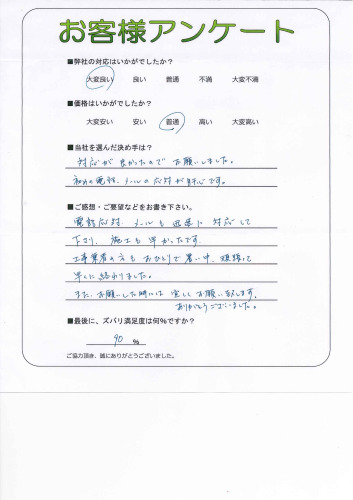 お客様アンケート
■弊社の対応はいかがでしたか？
大変良い 良い 普通 不満 大変不満
■価格はいかがでしたか？
大変安い 安い 普通 高い 大変高い
■当社を選んだ決め手は？
対応が良かったのでお願いしました。
初めの電話、メールの応対が
■ご感想・ご要望などをお書き下さい。
電話応対、メールも迅速に対応して
下さり、施工も早かったです。
工事業者の方もおひとりで暑い中、頑張って
早くに終わりました。
また、お願いした時には宜しくお願い致します。
ありがとうございました。
■最後に、ズバリ満足度は何％ですか？
90 ％
ご協力頂き、誠にありがとうございました。